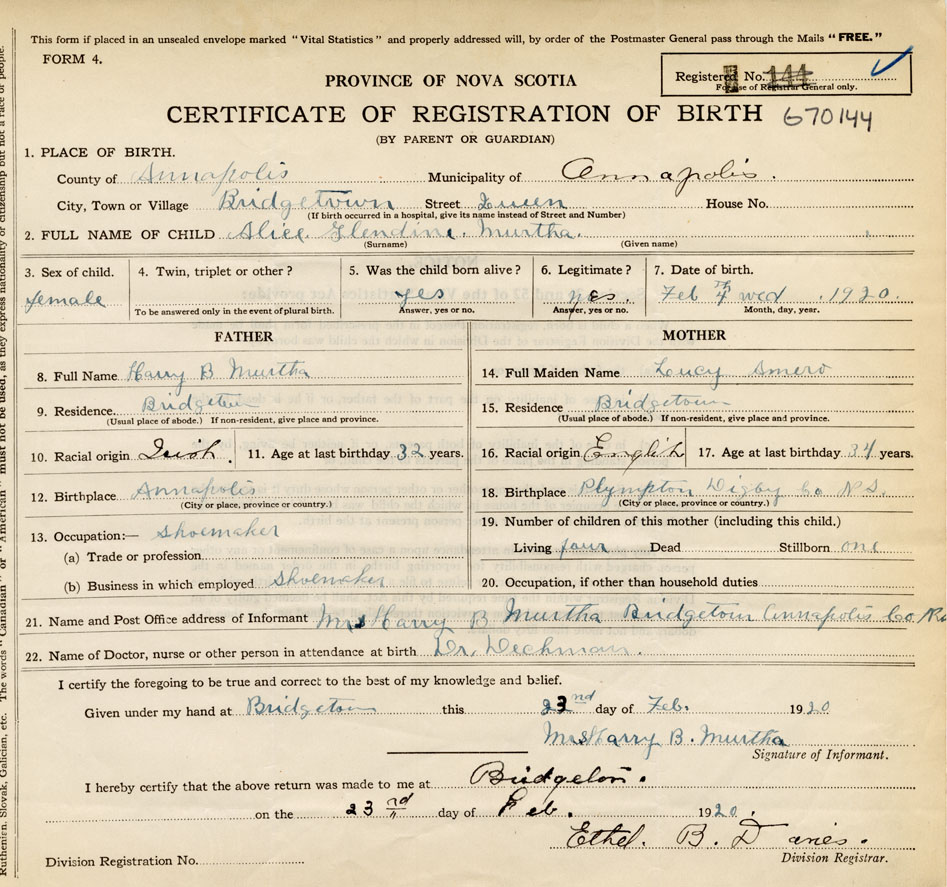 This form if placed in an unsealed envelope marked "Vital Statistics" and properly addressed will, by order of the Postmaster General pass through the Mails "FREE."
FORM 4.
Registered No. 144
For use of Registrar General only.
PROVINCE OF NOVA SCOTIA
CERTIFICATE OF REGISTRATION OF BIRTH 670144
(BY PARENT OR GUARDIAN)
1. PLACE OF BIRTH.
County of Annapolis Municipality of Annapolis.
City, Town or Village Bridgetown Street Queen House No.
(If birth occurred in a hospital, give its name instead of Street and Number)
2. FULL NAME OF CHILD Alice Glendine Murtha.
(Surname) (Given name)
3. Sex of child. 4. Twin, triplet or other? 5. Was the child born alive? 6. Legitimate? 7. Date of birth.
female yes yes. Feb 4th wed. 1920.
To be answered only in the event of plural birth. Answer, yes or no. Answer, yes or no. Month, day, year.
FATHER
8. Full Name Harry B Murtha
9. Residence. Bridgetown
(Usual place of abode.) If non-resident, give place and province.
10. Racial origin Irish. 11. Age at last birthday 32 years.
12. Birthplace Annapolis
(City or place, province or country.)
13. Occupation:— Shoemaker
(a) Trade or profession
(b) Business in which employed Shoemaker
MOTHER
14. Full Maiden Name Loucy Smero
15. Residence Bridgetown
(Usual place of abode.) If non-resident, give place and province.
16. Racial origin English 17. Age at last birthday 34 years.
18. Birthplace Plympton Digby Co N S.
(City or place, province or country.)
19. Number of children of this mother (including this child.)
Living four Dead Stillborn one
20. Occupation, if other than household duties
21. Name and Post Office address of Informant Mrs Harry B Murtha Bridgetown Annapolis Co
22. Name of Doctor, nurse or other person in attendance at birth Dr. Dechman.
I certify the foregoing to be true and correct to the best of my knowledge and belief.
Given under my hand at Bridgetown this 23nd day of Feb. 1920
Mrs Harry B. Murtha
Signature of Informant.
I hereby certify that the above return was made to me at Bridgeton.
on the 23rd day of Feb. 1920.
Ethel. B. Davies.
Division Registrar.
Division Registration No.
Ruthenien, Slovak, Galician, etc. The words "Canadian" or "American" must not be used, as they express nationality or citizenship but not a race or people.